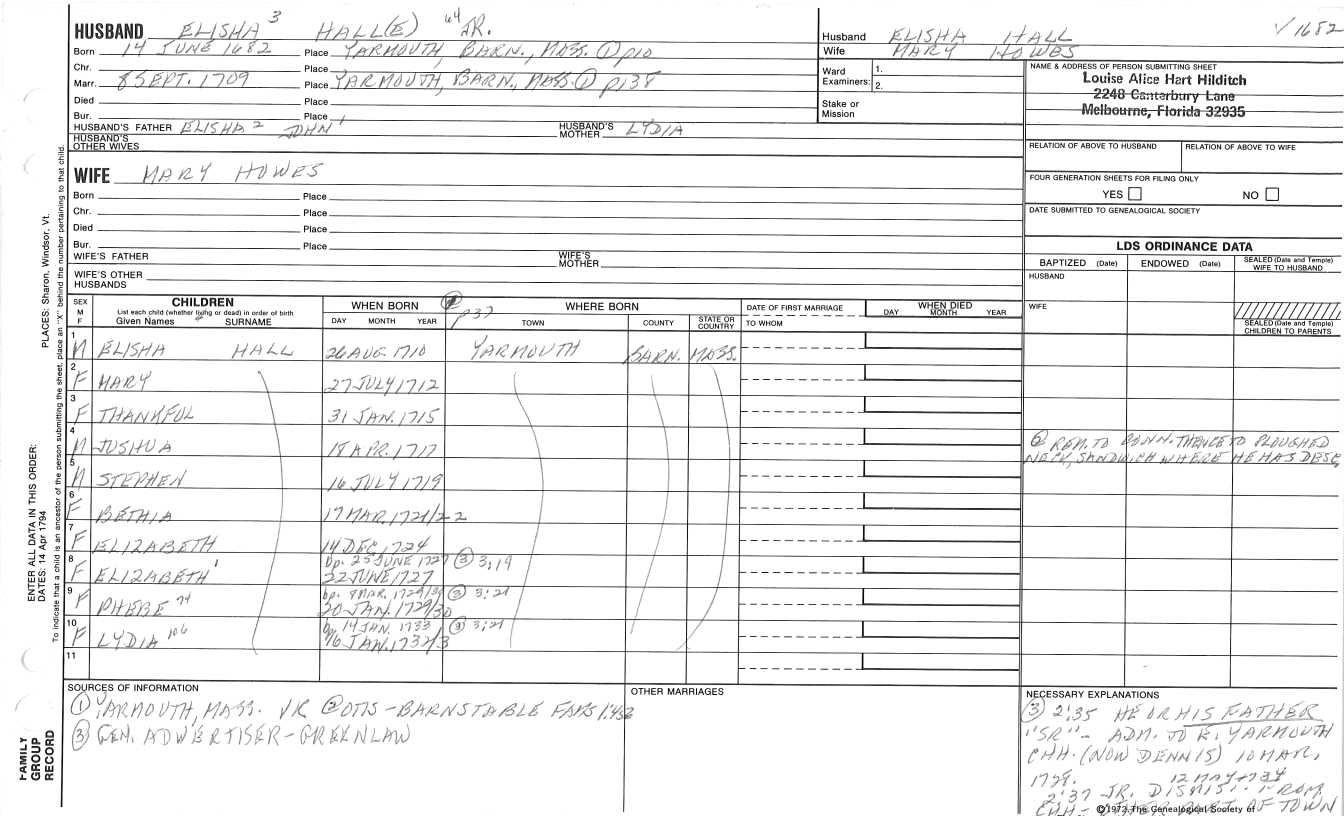 HUSBAND ELISHA 3 HALL(E) 64 JR.
Born 14 JUNE 1682 Place YARMOUTH, BARN., MASS. ① p10
Chr. Place
Marr. 8 SEPT. 1709 Place YARMOUTH, BARN., MASS. ① p138
Died Place
Bur. Place
HUSBAND'S FATHER ELISHA 2 JOHN 1 HUSBAND'S MOTHER LYDIA
HUSBAND'S OTHER WIVES
WIFE MARY HOWES
Born Place
Chr. Place
Died Place
Bur. Place
WIFE'S FATHER WIFE'S MOTHER
WIFE'S OTHER HUSBANDS
Husband ELISHA HALL √1682
Wife MARY HOWES
Ward Examiners: 1. 2.
Stake or Mission
NAME & ADDRESS OF PERSON SUBMITTING SHEET
Louise Alice Hart Hilditch
2248 Canterbury Lane
Melbourne, Florida 32935
RELATION OF ABOVE TO HUSBAND RELATION OF ABOVE TO WIFE
FOUR GENERATION SHEETS FOR FILING ONLY
YES NO
DATE SUBMITTED TO GENEALOGICAL SOCIETY
LDS ORDINANCE DATA
BAPTIZED (Date) ENDOWED (Date) SEALED (Date and Temple) WIFE TO HUSBAND
HUSBAND
WIFE
SEALED (Date and Temple) CHILDREN TO PARENTS
SEX M F CHILDREN List each child (whether living or dead) in order of birth Given Names SURNAME
WHEN BORN DAY MONTH YEAR
p37 WHERE BORN TOWN COUNTY STATE OR COUNTRY
DATE OF FIRST MARRIAGE TO WHOM
WHEN DIED DAY MONTH YEAR
1 M ELISHA HALL 26 AUG 1710 YARMOUTH BARN. MASS.
2 F MARY 27 JULY 1712
3 F THANKFUL 31 JAN. 1715
4 M JOSHUA 18 APR. 1717 ② REM. TO CONN. THENCE TO PLOUGHED
NECK, SANDWICH WHERE HE HAS DESC.
5 M STEPHEN 16 JULY 1719
6 F BETHIA 17 MAR. 1721/22
7 F ELIZABETH 14 DEC. 1724
8 F ELIZABETH bp. 25 JUNE 1727 ③ 3:19
22 JUNE 1727
9 F PHEBE 74 bp. 8 MAR. 1729/30 ③ 3:21
20 JAN. 1729/30
10 F LYDIA 106 bp 14 JAN. 1733 ③ 3:21
16 JAN. 1732/3
11
SOURCES OF INFORMATION
① YARMOUTH, MASS. VR ② OTIS-BARNSTABLE FAMS 1:432
③ GEN. ADVERTISER-GREENLAW
OTHER MARRIAGES
NECESSARY EXPLANATIONS
③ 2:35 HE OR HIS FATHER
"SR"- ADM. TO E. YARMOUTH
CHH. (NOW DENNIS) 10 MAR,
1728.
12 MAY 1734
2:37 JR. DISMIST. FROM
CHH- OTHER PART OF TOWN
© 1972 The Genealogical Society of
PLACES: Sharon, Windsor, Vt.
ENTER ALL DATA IN THIS ORDER:
DATES: 14 Apr 1794
To indicate that a child is an ancestor of the person submitting the sheet, place an "X" behind the number pertaining to that child.
FAMILY
GROUP
RECORD